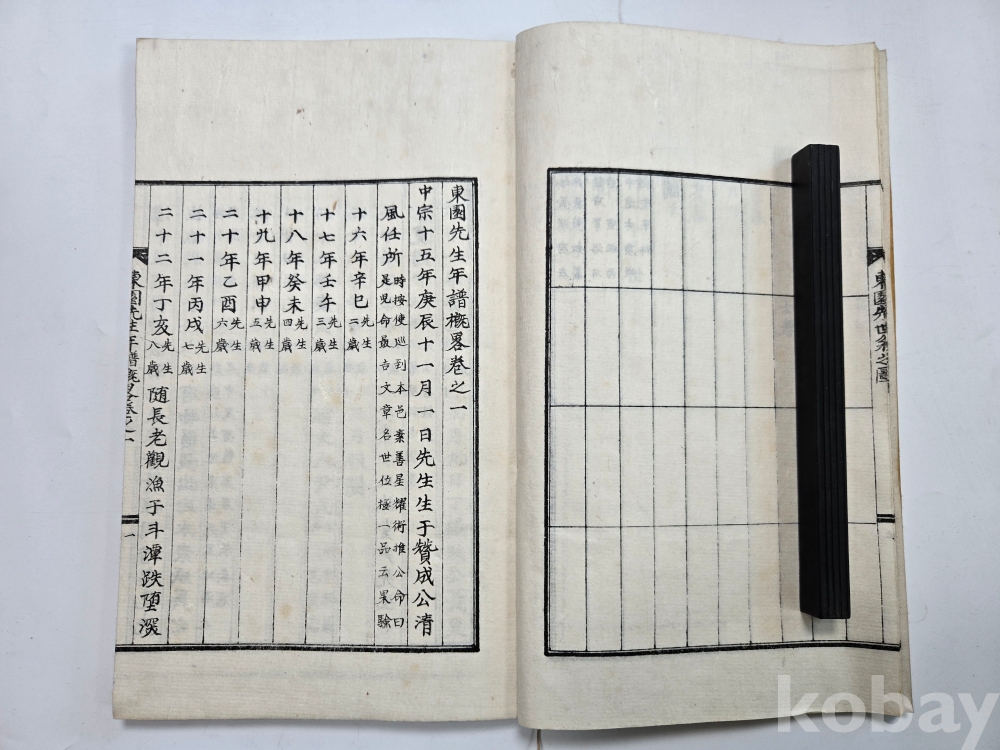 東園先生世系之圖
東園先生年譜概畧卷之一
中宗十五年庚辰十一月一日先生生于贊成公清
風任所
時按使巡到本邑素善星耀術推公命曰
是児命最吉文章名世位極一品云果驗
十六年辛巳先生二歲
十七年壬午先生三歲
十八年癸未先生四歲
十九年甲申先生五歲
二十年乙酉先生六歲
二十一年丙戌先生七歲
二十二年丁亥先生八歲随長老觀漁于斗潭跌墮深
東園先生年譜概畧卷之一
一
kobay